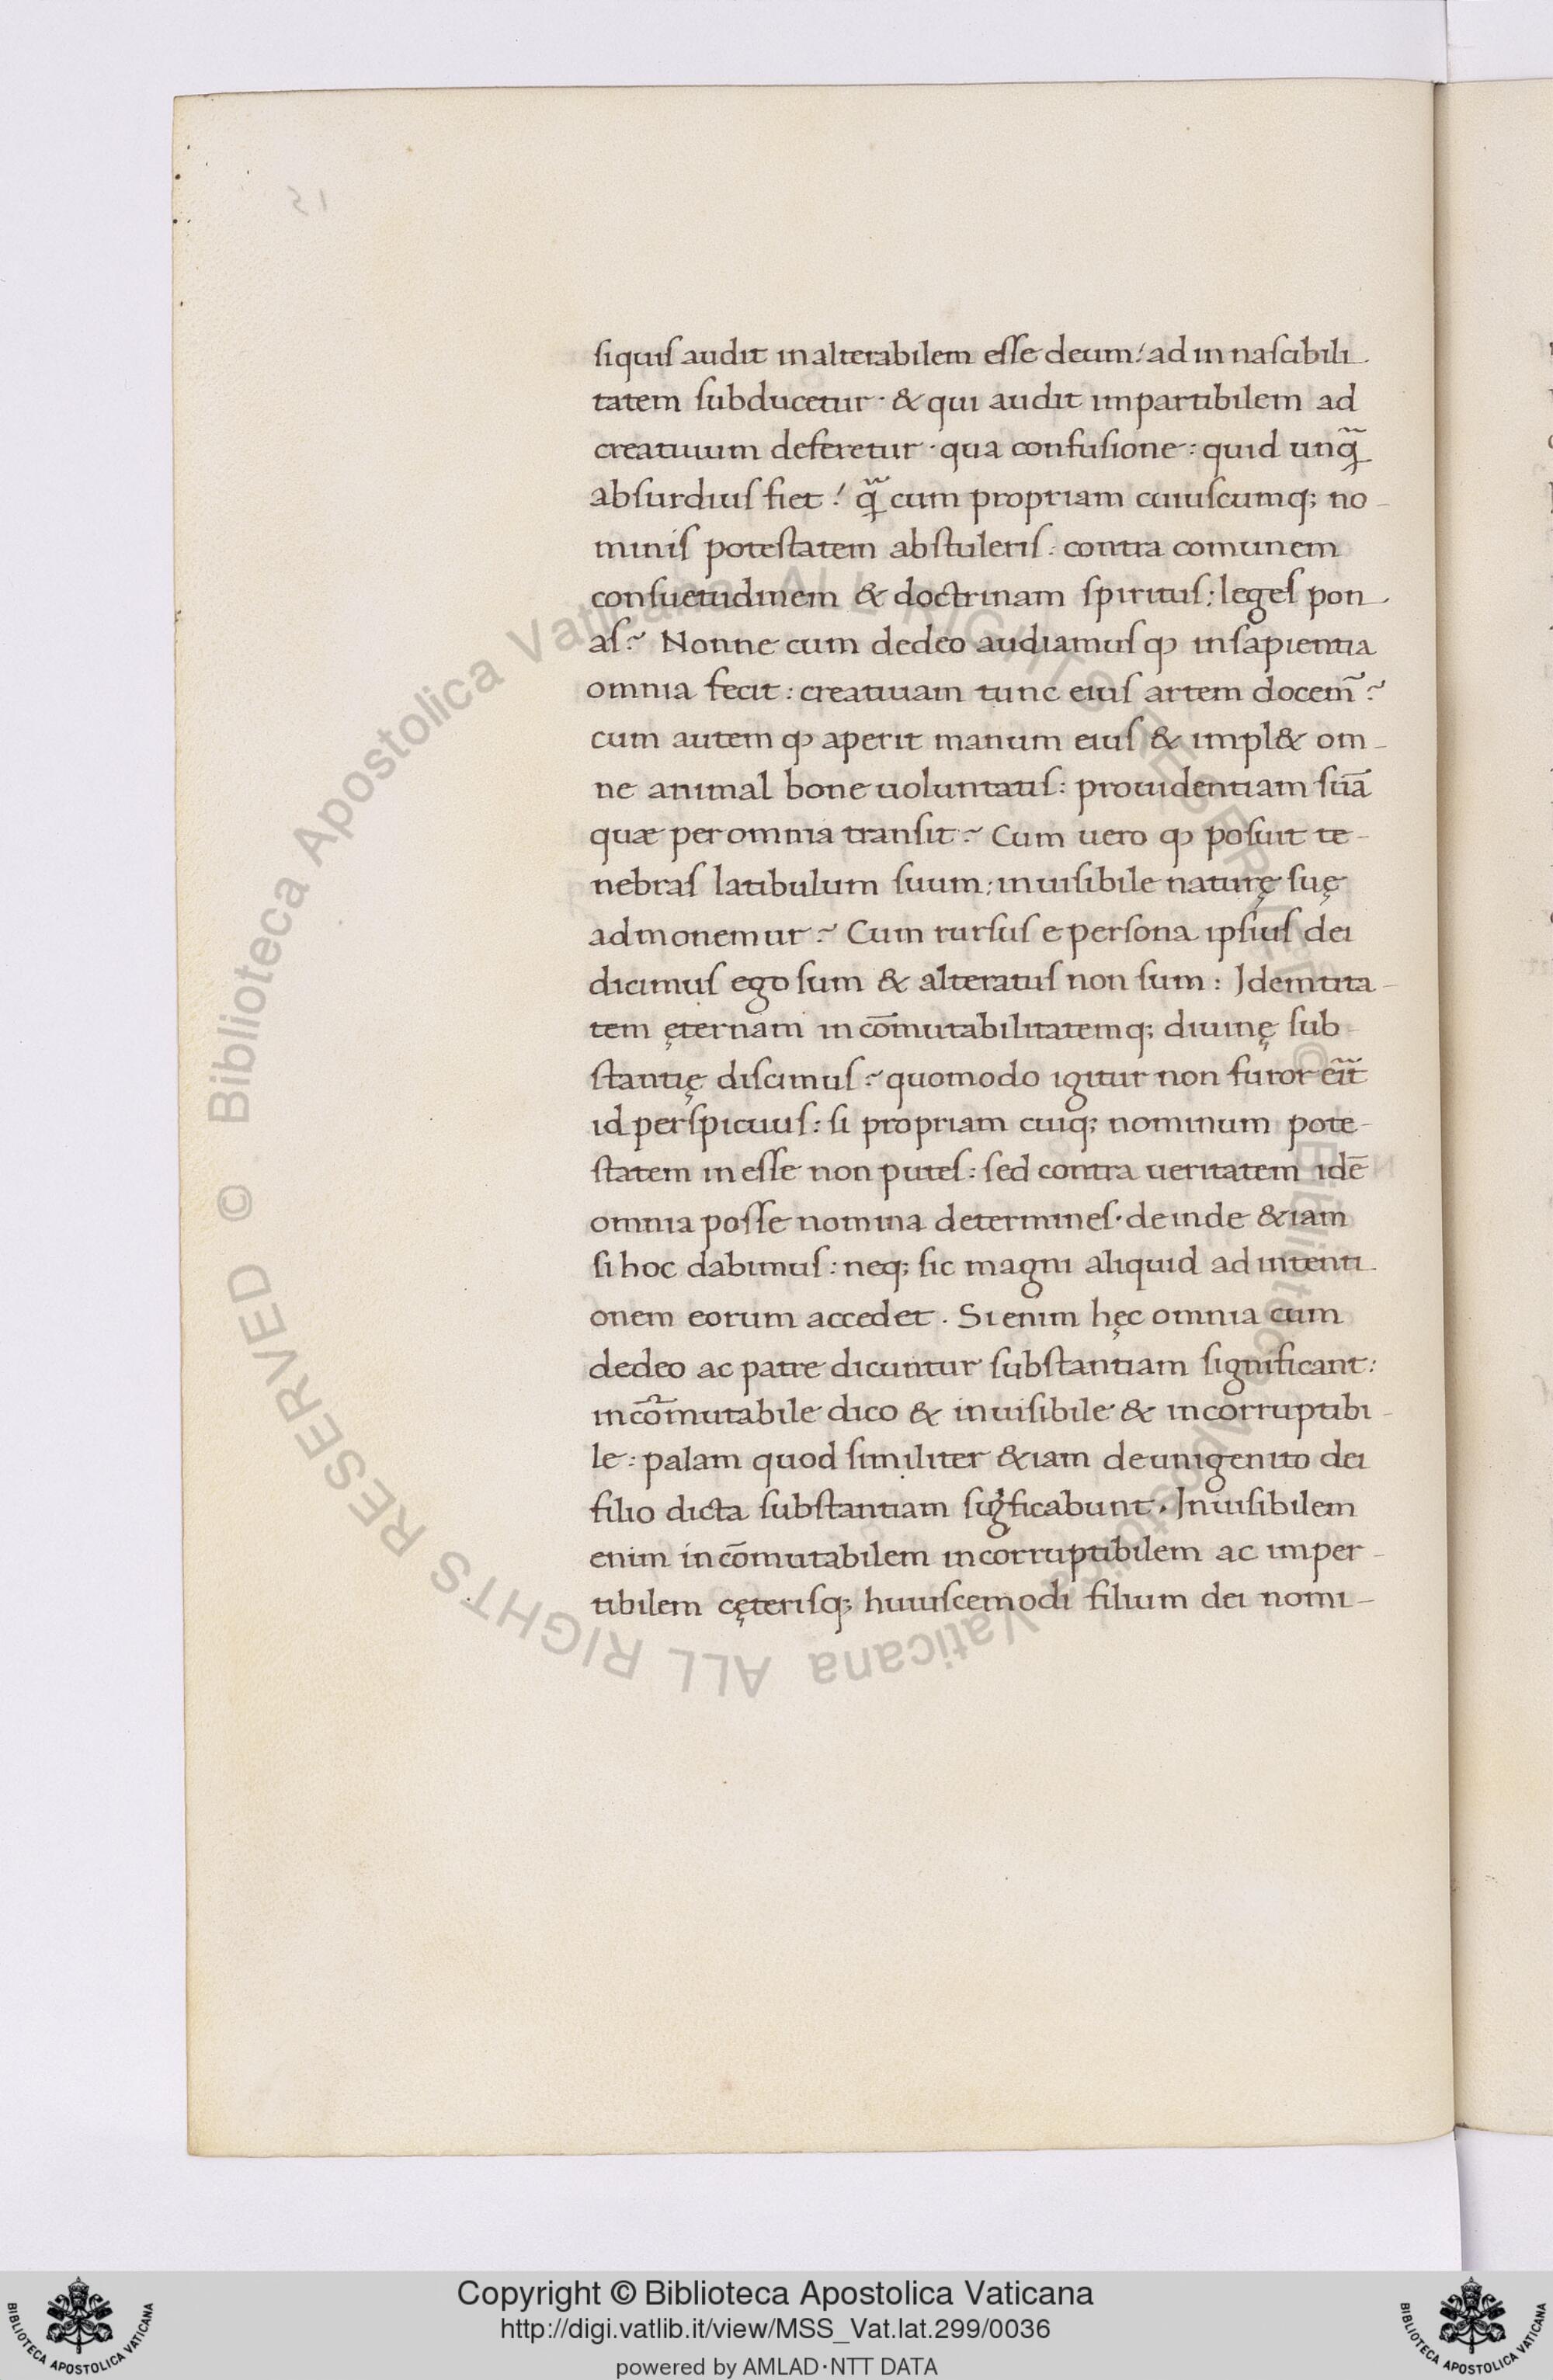 siquis audit inalterabilem esse deum: ad in nascibili-
tatem subducetur · & qui audit impartibilem ad
creatiuum deferetur · qua confusione: quid unq̃
absurdius fiet? q̃ cum propriam cuiuscumq; no-
minis potestatem abstuleris: contra comunem
consuetudinem & doctrinam spiritus: leges pon-
as? Nonne cum dedeo audiamus ꝙ insapientia
omnia fecit: creatiuam tunc eius artem docem̃?
cum autem ꝙ aperit manum eius & impl& om-
ne animal bone uoluntatis: prouidentiam suā
quæ per omnia transit? Cum uero ꝙ posuit te-
nebras latibulum suum: inuisibile naturę suę
admonemur? Cum rursus e persona ipsius dei
dicimus ego sum & alteratus non sum: Idemtita-
tem ęternam incōmutabilitatemq; diuinę sub-
stantię discimus? quomodo igitur non furor erit̃
id perspicuus: si propriam cuiq; nominum pote-
statem inesse non putes: sed contra ueritatem idē
omnia posse nomina determines · deinde &iam
si hoc dabimus: neq; sic magni aliquid ad intenti-
onem eorum accedet · Si enim hęc omnia cum
dedeo ac patre dicuntur substantiam significant:
incōmutabile dico & inuisibile & incorruptibi-
le: palam quod similiter &iam deunigenito dei
filio dicta substantiam significabunt · Inuisibilem
enim incōmutabilem incorruptibilem ac imper-
tibilem cęterisq; huiuscemodi filium dei nomi-
© Biblioteca Apostolica Vaticana ALL RIGHTS RESERVED
© Biblioteca Apostolica Vaticana ALL RIGHTS RESERVED
Copyright © Biblioteca Apostolica Vaticana
http://digi.vatlib.it/view/MSS_Vat.lat.299/0036
powered by AMLAD·NTT DATA
BIBLIOTECA APOSTOLICA VATICANA
BIBLIOTECA APOSTOLICA VATICANA